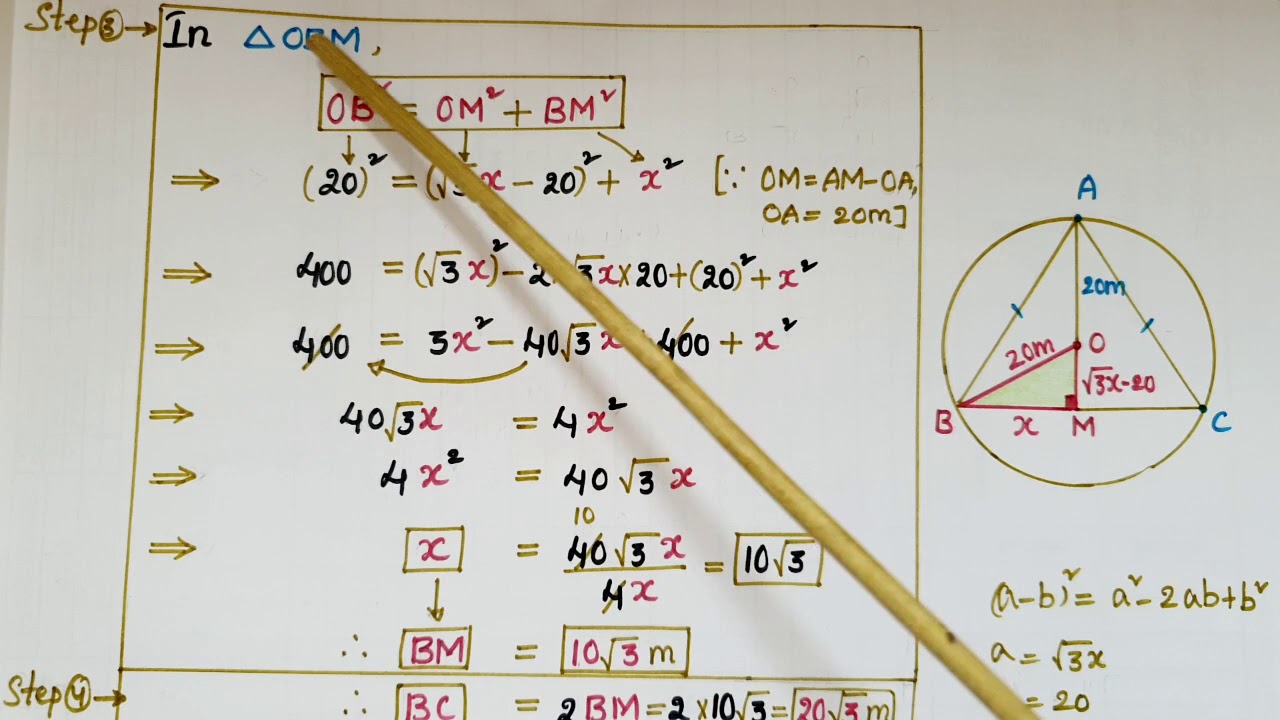 Step③→ In △OBM,
OB² = OM² + BM²
⇒ (20)² = (√3x - 20)² + x² [∵ OM=AM-OA,
OA= 20m]
⇒ 400 = (√3x)² - 2 √3x×20+(20)² + x²
⇒ 400 = 3x² - 40√3x 400 + x²
⇒ 40√3x = 4x²
⇒ 4x² = 40√3x
10
⇒ x = 40√3x/4x = 10√3
∴ BM = 10√3m
Step④→ ∴ BC = 2BM=2×10√3=20√3m
A
20m
20m O
√3x-20
B x M C
(a-b)² = a²-2ab+b²
a = √3x
= 20